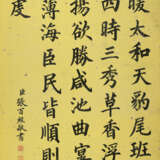 暖太和天豹尾班
西時三秀草香浮
揚欲勝咸池曲宴
薄海臣民皆順則
虔
臣張百熙敬書